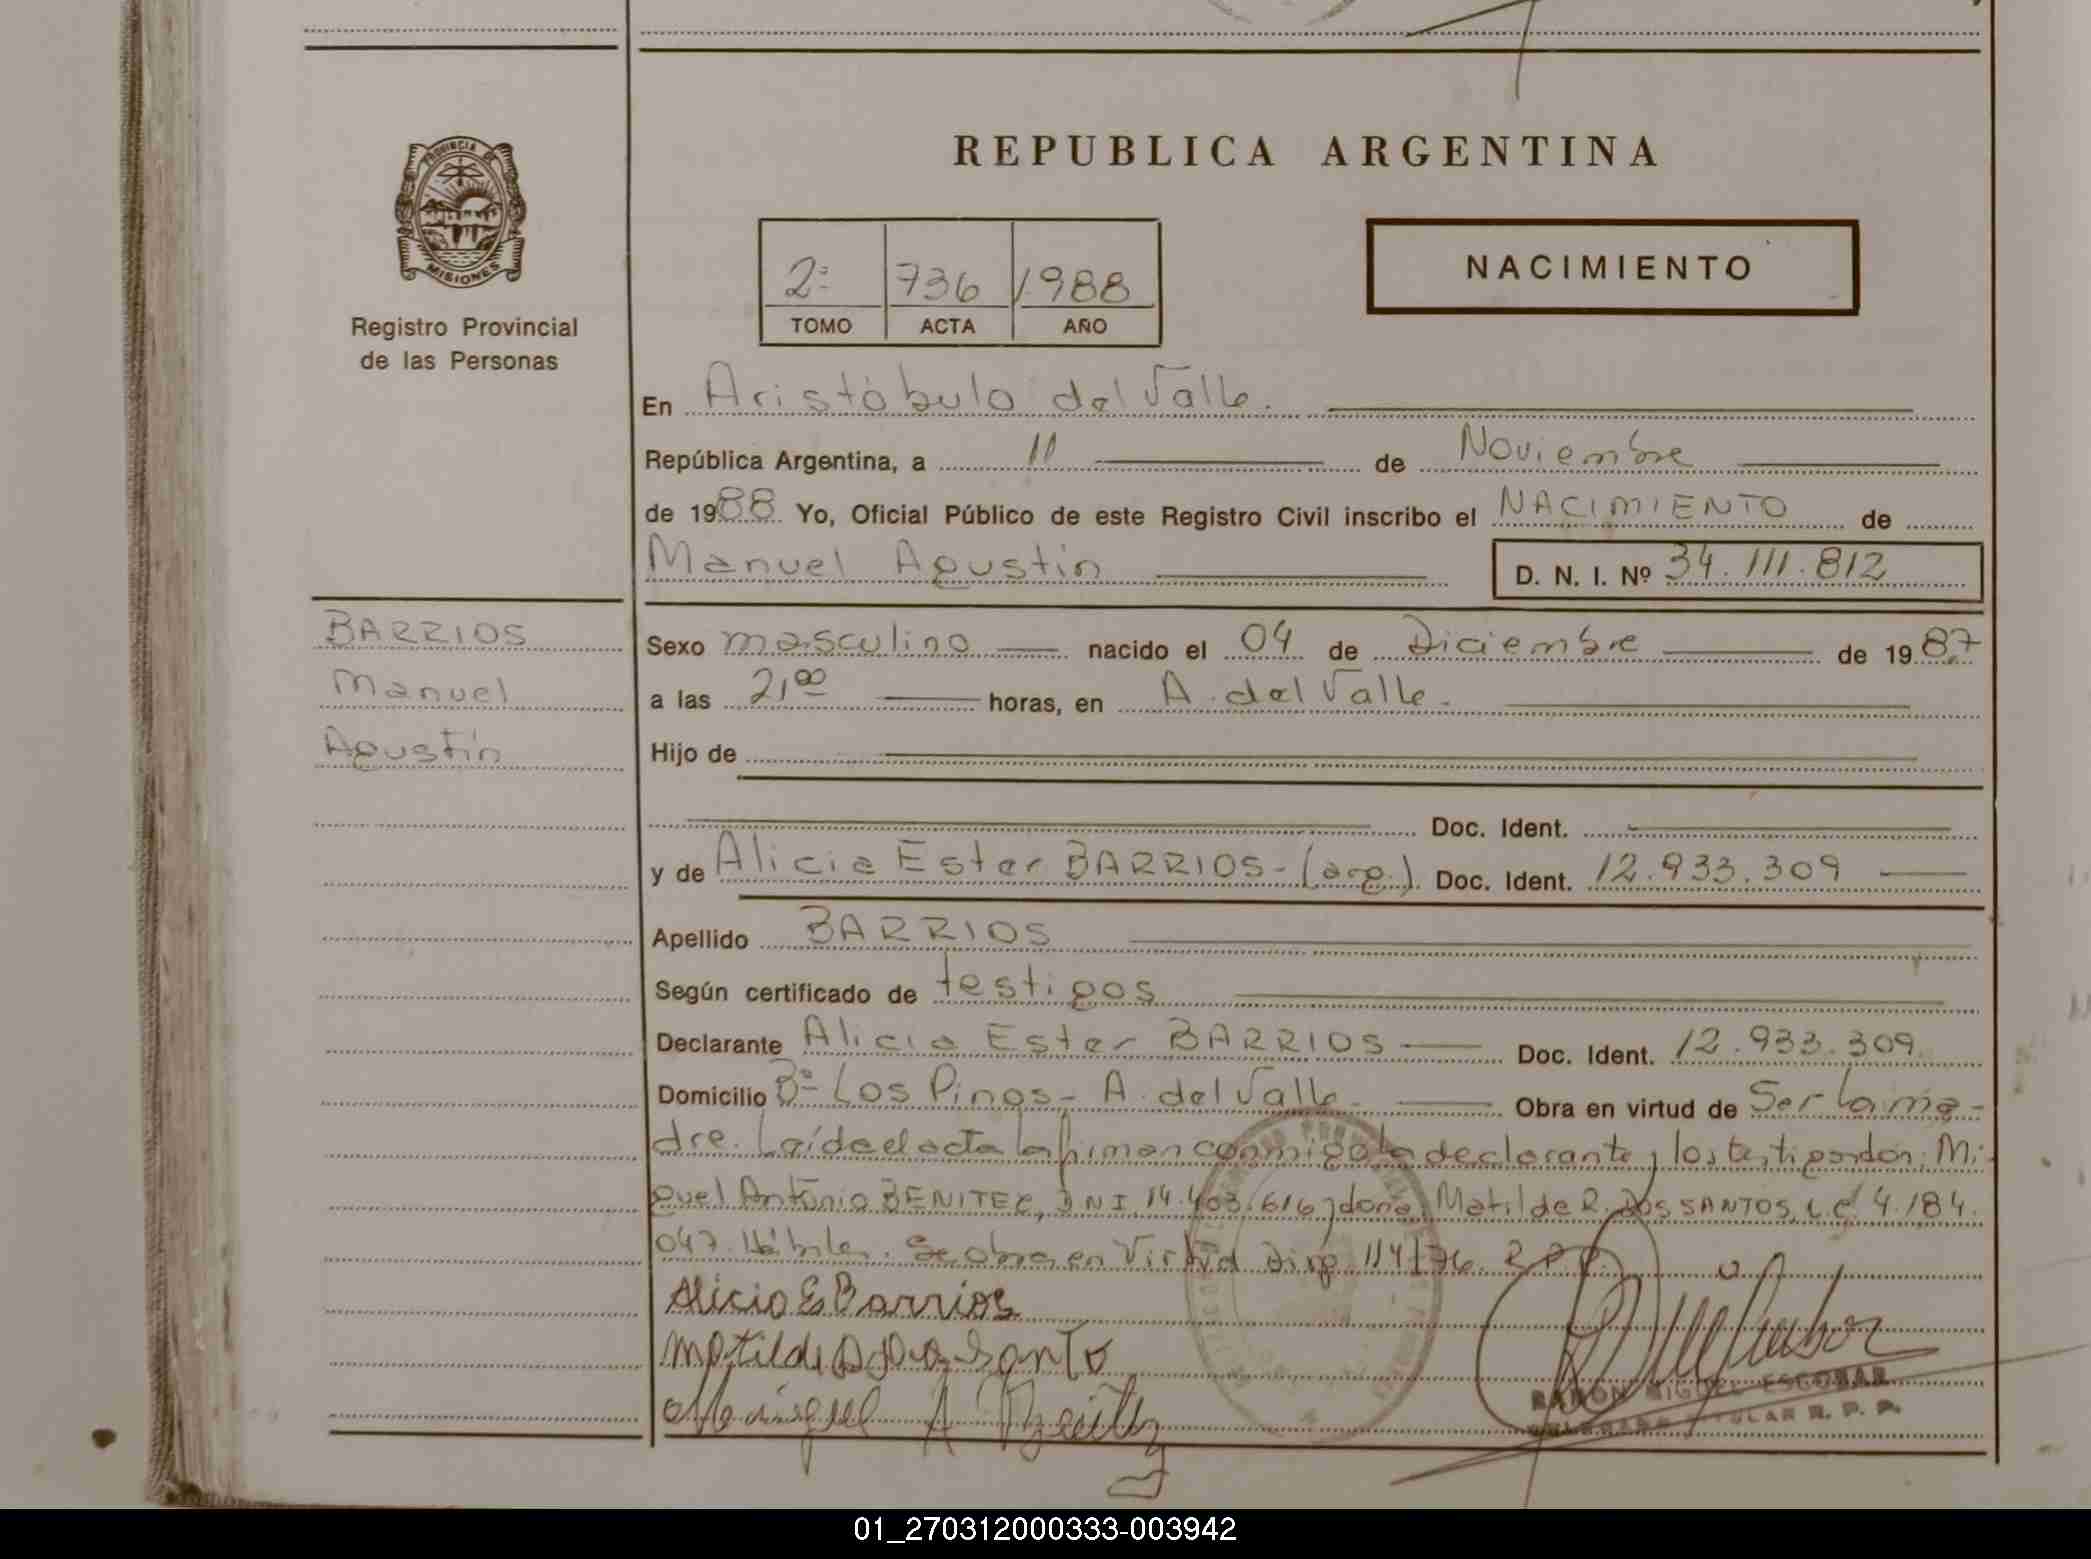 PROVINCIA DE
MISIONES
Registro Provincial
de las Personas
REPUBLICA ARGENTINA
2º 736 1988
TOMO ACTA AÑO
NACIMIENTO
En Aristóbulo del Valle.
República Argentina, a 11 de Noviembre
de 1988 Yo, Oficial Público de este Registro Civil inscribo el NACIMIENTO de
Manuel Agustín D. N. I. Nº 34.111.812
BARRIOS
Manuel
Agustín
Sexo masculino nacido el 04 de Diciembre de 1987
a las 21,00 horas, en A. del Valle.
Hijo de
Doc. Ident.
y de Alicia Ester BARRIOS - (arg.) Doc. Ident. 12.933.309
Apellido BARRIOS
Según certificado de testigos
Declarante Alicia Ester BARRIOS Doc. Ident. 12.933.309
Domicilio Bº Los Pinos - A. del Valle. Obra en virtud de Ser la ma-
dre. Leída el acta la firman conmigo la declarante y los testigos don: Mi-
guel Antonio BENITEZ, DNI 14.403.616 y doña Matilde R. DOS SANTOS, L.C. 4.184.
047. Hábiles. Se obra en Virtud Disp. 114/76. R.P.P.
Alicia E Barrios
Matilde
Miguel A
RAMON MIGUEL ESCOBAR
DELEGADO TITULAR R. P. P.
01_270312000333-003942